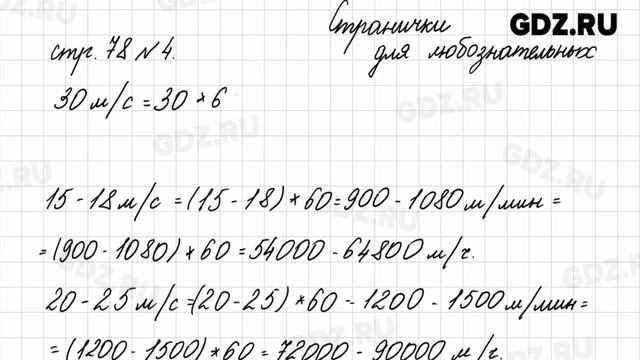 Странички
GDZ.RU
стр. 78 № 4.
для любознательных
30 м/с = 30 * 6
GDZ.RU
GDZ.RU
GDZ.RU
15 - 18 м/с = (15 - 18) * 60 = 900 - 1080 м/мин =
= (900 - 1080) * 60 = 54000 - 64800 м/ч.
20 - 25 м/с = (20 - 25) * 60 - 1200 - 1500 м/мин =
= (1200 - 1500) * 60 = 72000 - 90000 м/ч.